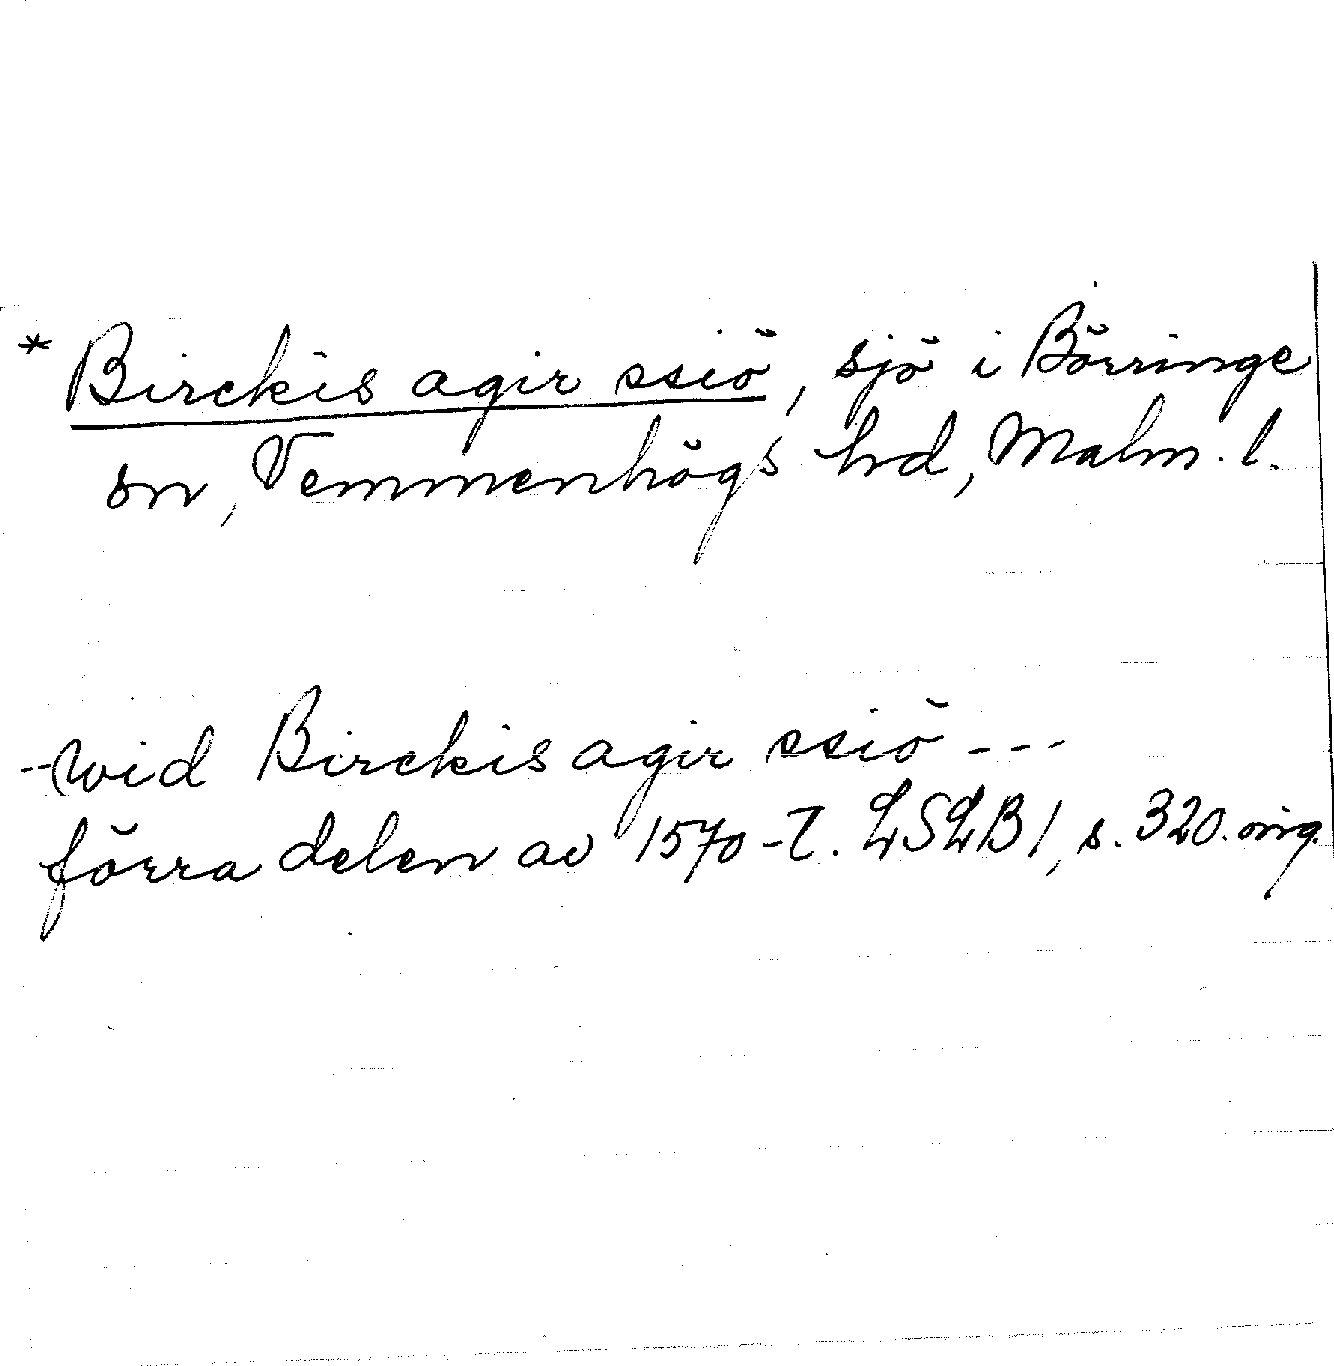 * Birckis agir ssiö, sjö i Börringe
sn, Vemmenhögs hd, Malm. l.
--wid Birckis agir ssiö ---
förra delen av 1570-t. LSLB 1, s. 320. orig.